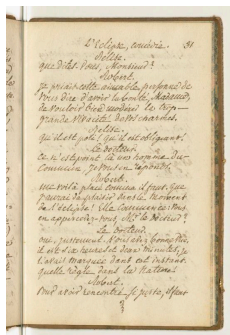 L'Eclipse, comédie. 31
Que dites-vous, Monsieur?
Robert.
je priais cette aimable personne de
vous dire d'avoir la bonté, Madame,
de vouloir bien modérer la trop
grande vivacité de vos charmes.
qu'il est poli! qu'il est obligeant!
Le docteur.
Ce n'est point là un homme du
commun, je vous en réponds.
Robert.
me voilà placé comme il faut. que
j'aurai de plaisir dans le moment
de l'éclipse! Elle commence; vous
en appercevez-vous, Mr. le docteur?
Le docteur.
oui, justement.
il est six heures et deux minutes, je
l'avais marqué dans cet instant.
quelle règle dans la nature!
Robert.
Pour avoir rencontré si juste, il faut